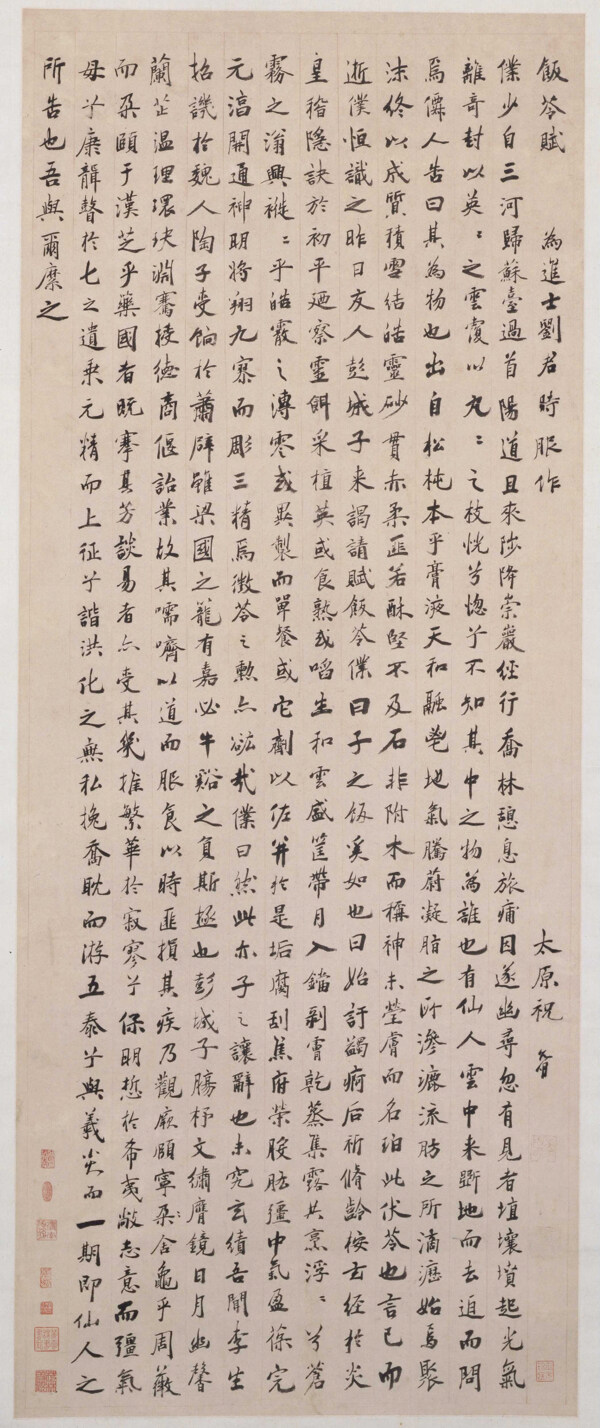 飯苓賦 為進士劉君時服作 太原祝
僕少自三河歸蘇臺過首陽道且來陟降崇巖經行喬林憩息旅痡因遂幽尋忽有見者埴壤墳起光氣
離奇封以英〻之雲覆以丸〻之枝恍兮惚兮不知其中之物為誰也有仙人雲中来斲地而去追而問
焉僊人告曰其為物也出自松杶本乎膏液天和融茫地氣騰蔚凝脂之所滲漉流肪之所滴瀝始焉聚
沫終以成質積雪結皓靈砂貫赤柔匪若酥堅不及石非附木而稱神未瑩膚而名珀此伏苓也言已而
逝僕恒識之昨日友人彭城子来謁請賦飯苓僕曰子之飯奚如也曰始訏蠲痾后祈脩齡按玄經於炎
皇稽隱訣於初平廼察靈餌采植英或食熟或啗生和雲盛筐帶月入鐺剥膚乾蒸集露共烹浮〻兮蒼
霧之滃興褷〻乎皓霰之溥零或異製而單餐或它劑以佐并於是垢腐刮焦府榮朘肪彊中氣盈葆完
元滈開通神明將翔九寮而彫三精焉微苓之勲亦欲哉僕曰然此亦子之讓辭也未究玄績吾聞李生
招譏於魏人陶子受餉於蕭辟雖梁國之籠有嘉必牛谿之負斯極也彭城子腸杼文繡膺鏡日月幽馨
蘭芷温理環玦淵騫接徳商偃詒業故其嚅嚌以道而服食以時匪損其疾乃觀厥頤寧朵舍龜乎周薇
而朶頤于漢芝乎藥國者既搴其芳談易者亦受其幾摧繁華於寂寥兮保明悊於希夷敞志意而彊氣
母兮康聾瞽於七之遺乗元精而上征兮詣洪化之無私挽喬耽而游五泰兮與羲炎而一期即仙人之
所告也吾與爾糜之